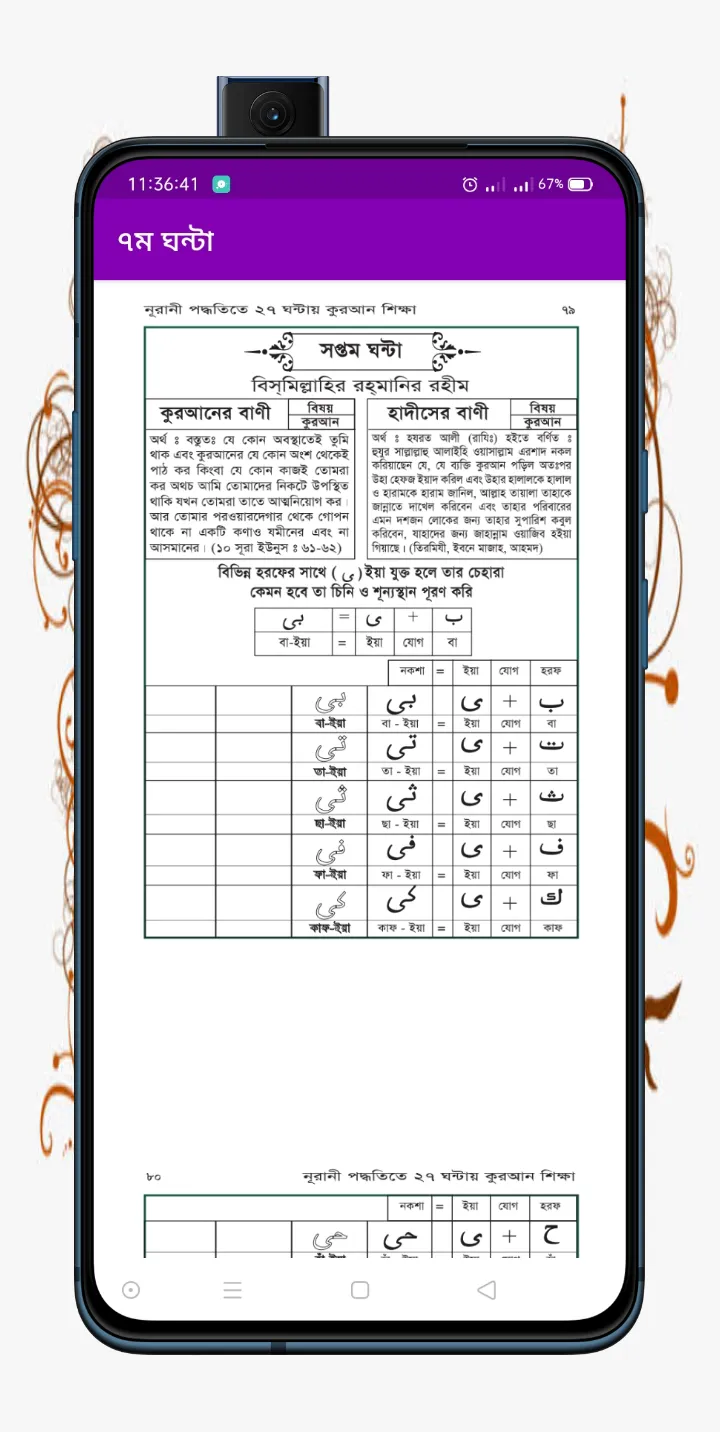 11:36:41 67%
৭ম ঘন্টা
নূরানী পদ্ধতিতে ২৭ ঘন্টায় কুরআন শিক্ষা ৭৯
সপ্তম ঘন্টা
বিস্‌মিল্লাহির রহ্‌মানির রহীম
কুরআনের বাণী
বিষয়
কুরআন
অর্থ ঃ বস্তুতঃ যে কোন অবস্থাতেই তুমি
থাক এবং কুরআনের যে কোন অংশ থেকেই
পাঠ কর কিংবা যে কোন কাজই তোমরা
কর অথচ আমি তোমাদের নিকটে উপস্থিত
থাকি যখন তোমরা তাতে আত্মনিয়োগ কর।
আর তোমার পরওয়ারদেগার থেকে গোপন
থাকে না একটি কণাও যমীনের এবং না
আসমানের। (১০ সূরা ইউনুস ঃ ৬১-৬২)
হাদীসের বাণী
বিষয়
কুরআন
অর্থ ঃ হযরত আলী (রাযিঃ) হইতে বর্ণিত ঃ
হুযুর সাল্লাল্লাহু আলাইহি ওয়াসাল্লাম এরশাদ নকল
করিয়াছেন যে, যে ব্যক্তি কুরআন পড়িল অতঃপর
উহা হেফজ ইয়াদ করিল এবং উহার হালালকে হালাল
ও হারামকে হারাম জানিল, আল্লাহ তায়ালা তাহাকে
জান্নাতে দাখেল করিবেন এবং তাহার পরিবারের
এমন দশজন লোকের জন্য তাহার সুপারিশ কবুল
করিবেন, যাহাদের জন্য জাহান্নাম ওয়াজিব হইয়া
গিয়াছে। (তিরমিযী, ইবনে মাজাহ, আহমদ)
বিভিন্ন হরফের সাথে (ى) ইয়া যুক্ত হলে তার চেহারা
কেমন হবে তা চিনি ও শূন্যস্থান পূরণ করি
بى = ى + ب
বা-ইয়া = ইয়া যোগ বা
নকশা = ইয়া যোগ হরফ
بى بى ى + ب
বা-ইয়া বা - ইয়া = ইয়া যোগ বা
تى تى ى + ت
তা-ইয়া তা - ইয়া = ইয়া যোগ তা
ثى ثى ى + ث
ছা-ইয়া ছা - ইয়া = ইয়া যোগ ছা
فى فى ى + ف
ফা-ইয়া ফা - ইয়া = ইয়া যোগ ফা
كى كى ى + ك
কাফ-ইয়া কাফ - ইয়া = ইয়া যোগ কাফ
৮০ নূরানী পদ্ধতিতে ২৭ ঘন্টায় কুরআন শিক্ষা
নকশা = ইয়া যোগ হরফ
حى حى ى + ح